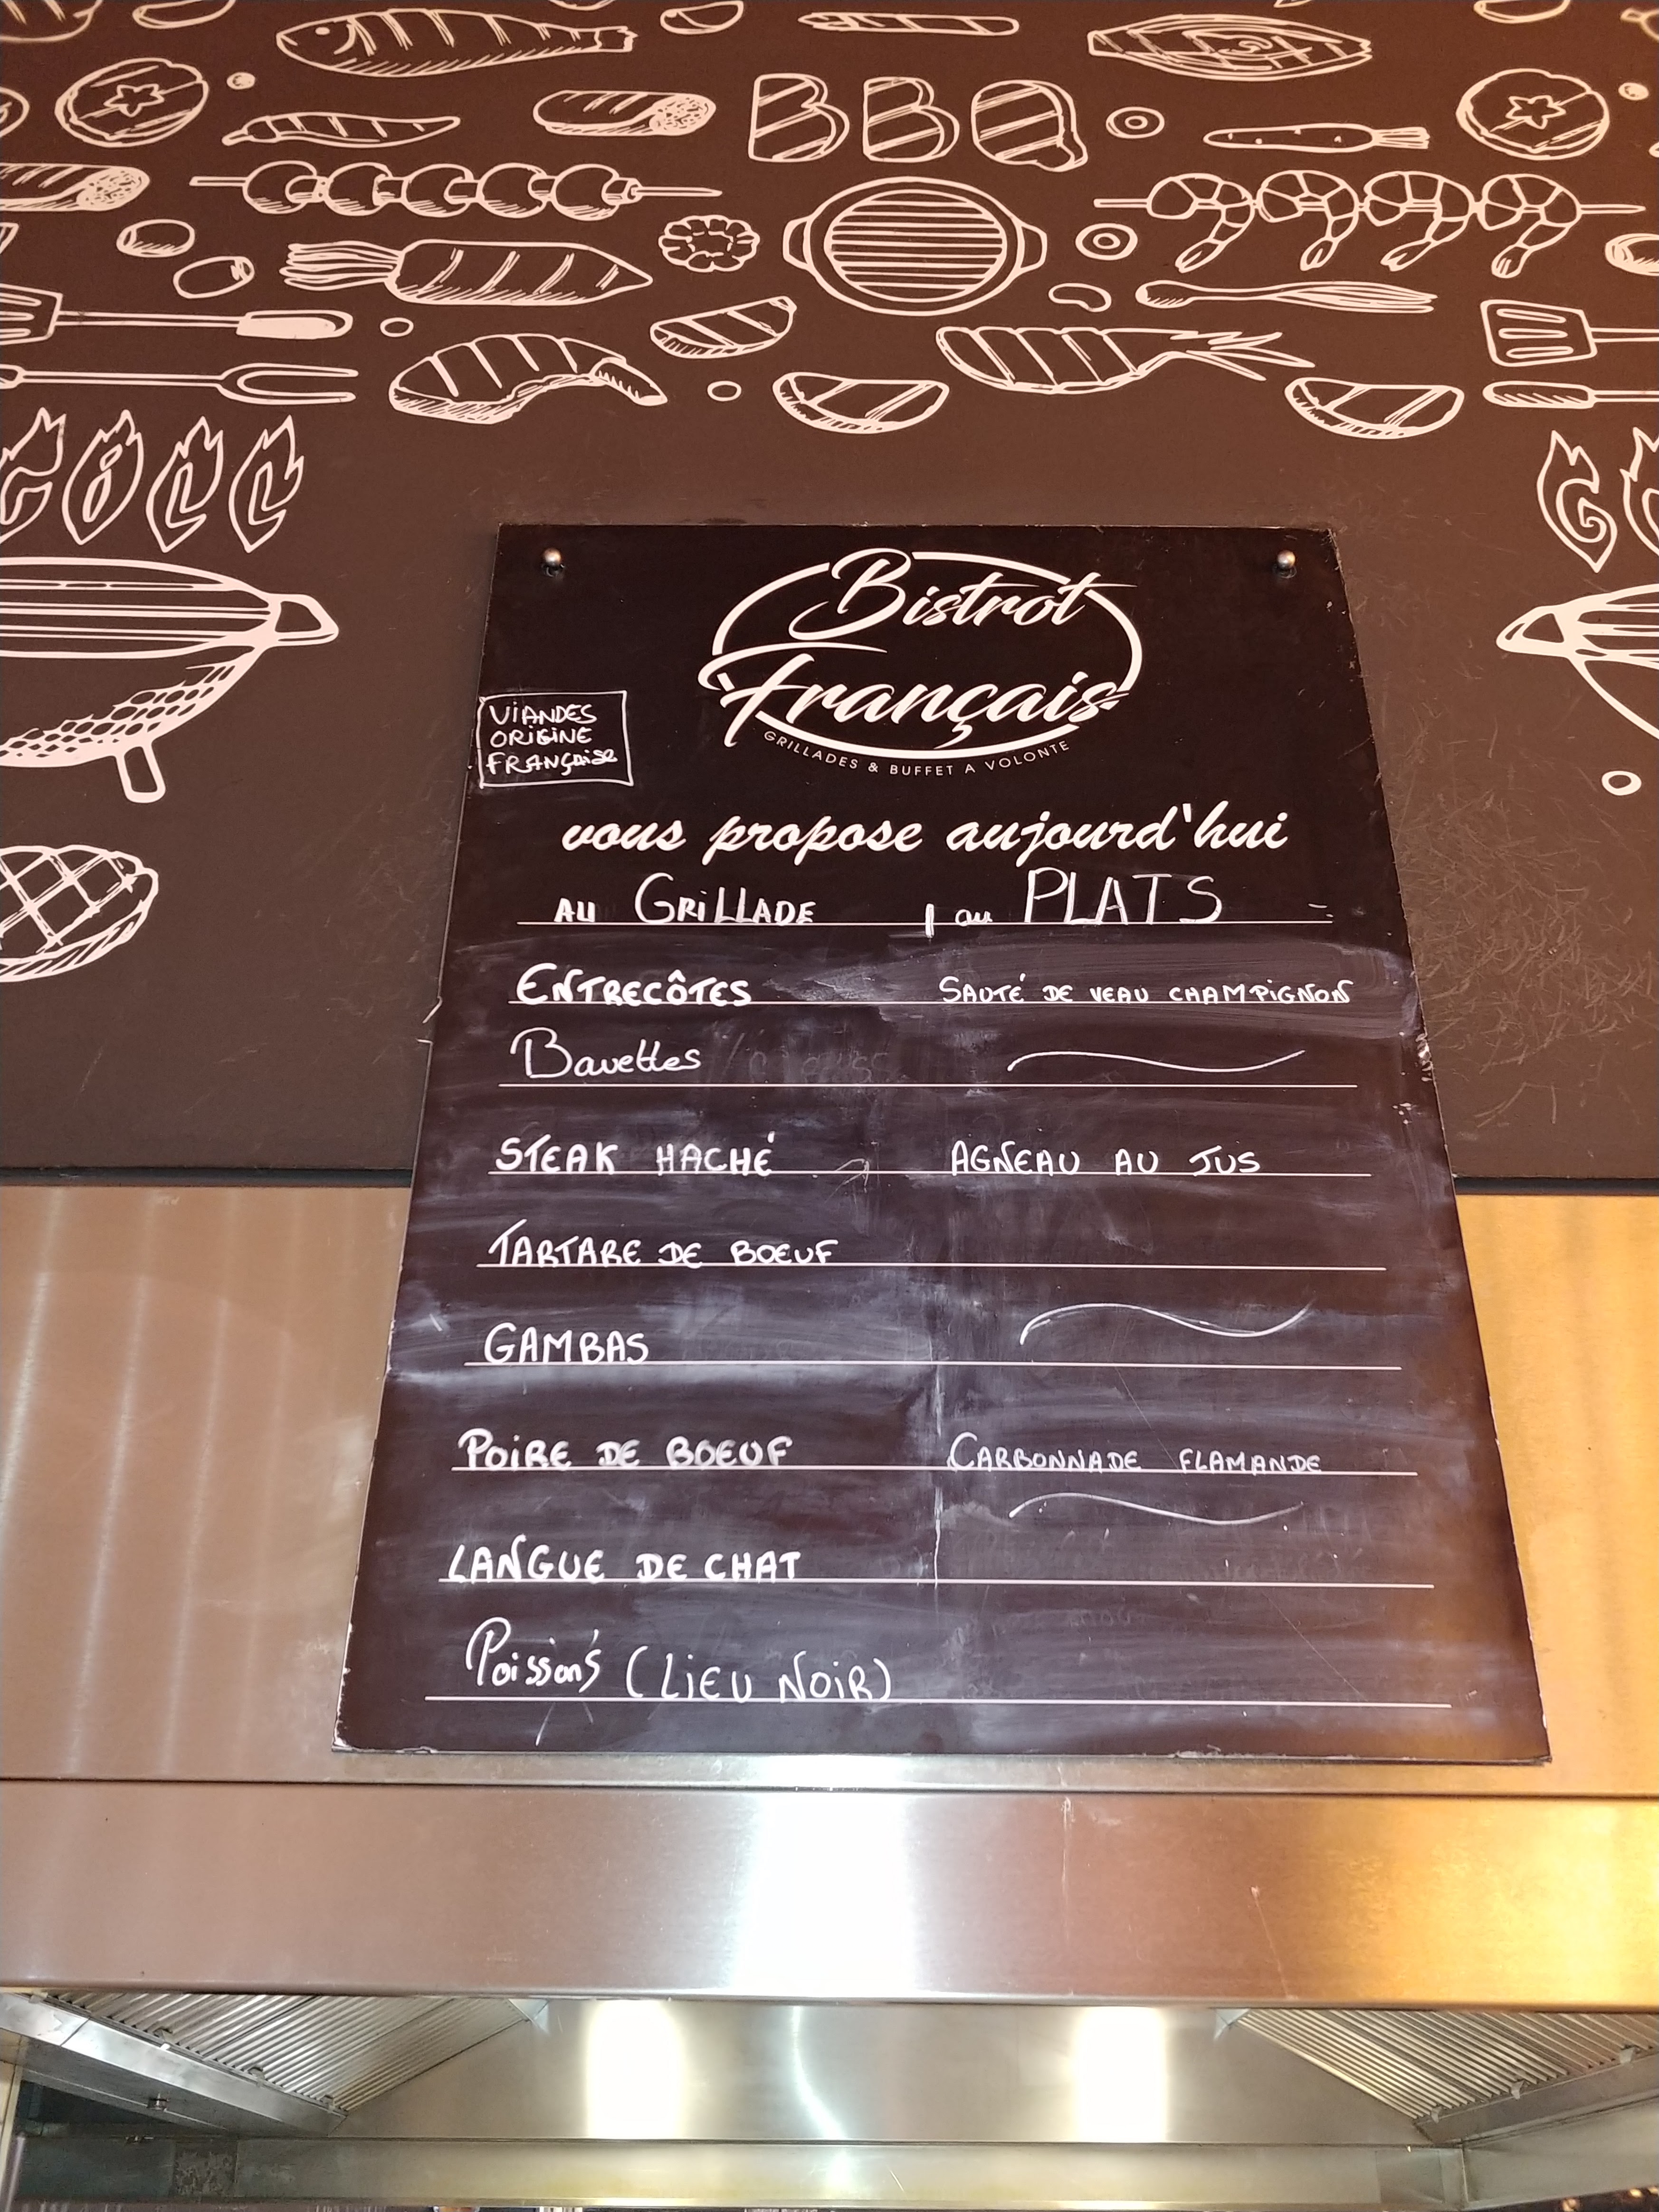 BBQ
GRILL
G
Bistrot
Français
GRILLADES & BUFFET A VOLONTE
VIANDES
ORIGINE
FRANçaise
vous propose aujourd'hui
AU GRiLLADE | au PLATS
ENTRECÔTES SAUTÉ DE VEAU CHAMPiGNON
Bavettes
STEAK HACHÉ AGNEAU AU JUS
TARTARE DE BOEUF
GAMBAS
POiRE DE BOEUF CARBONNADE FLAMANDE
LANGUE DE CHAT
Poisson's (LiEU NOiR)